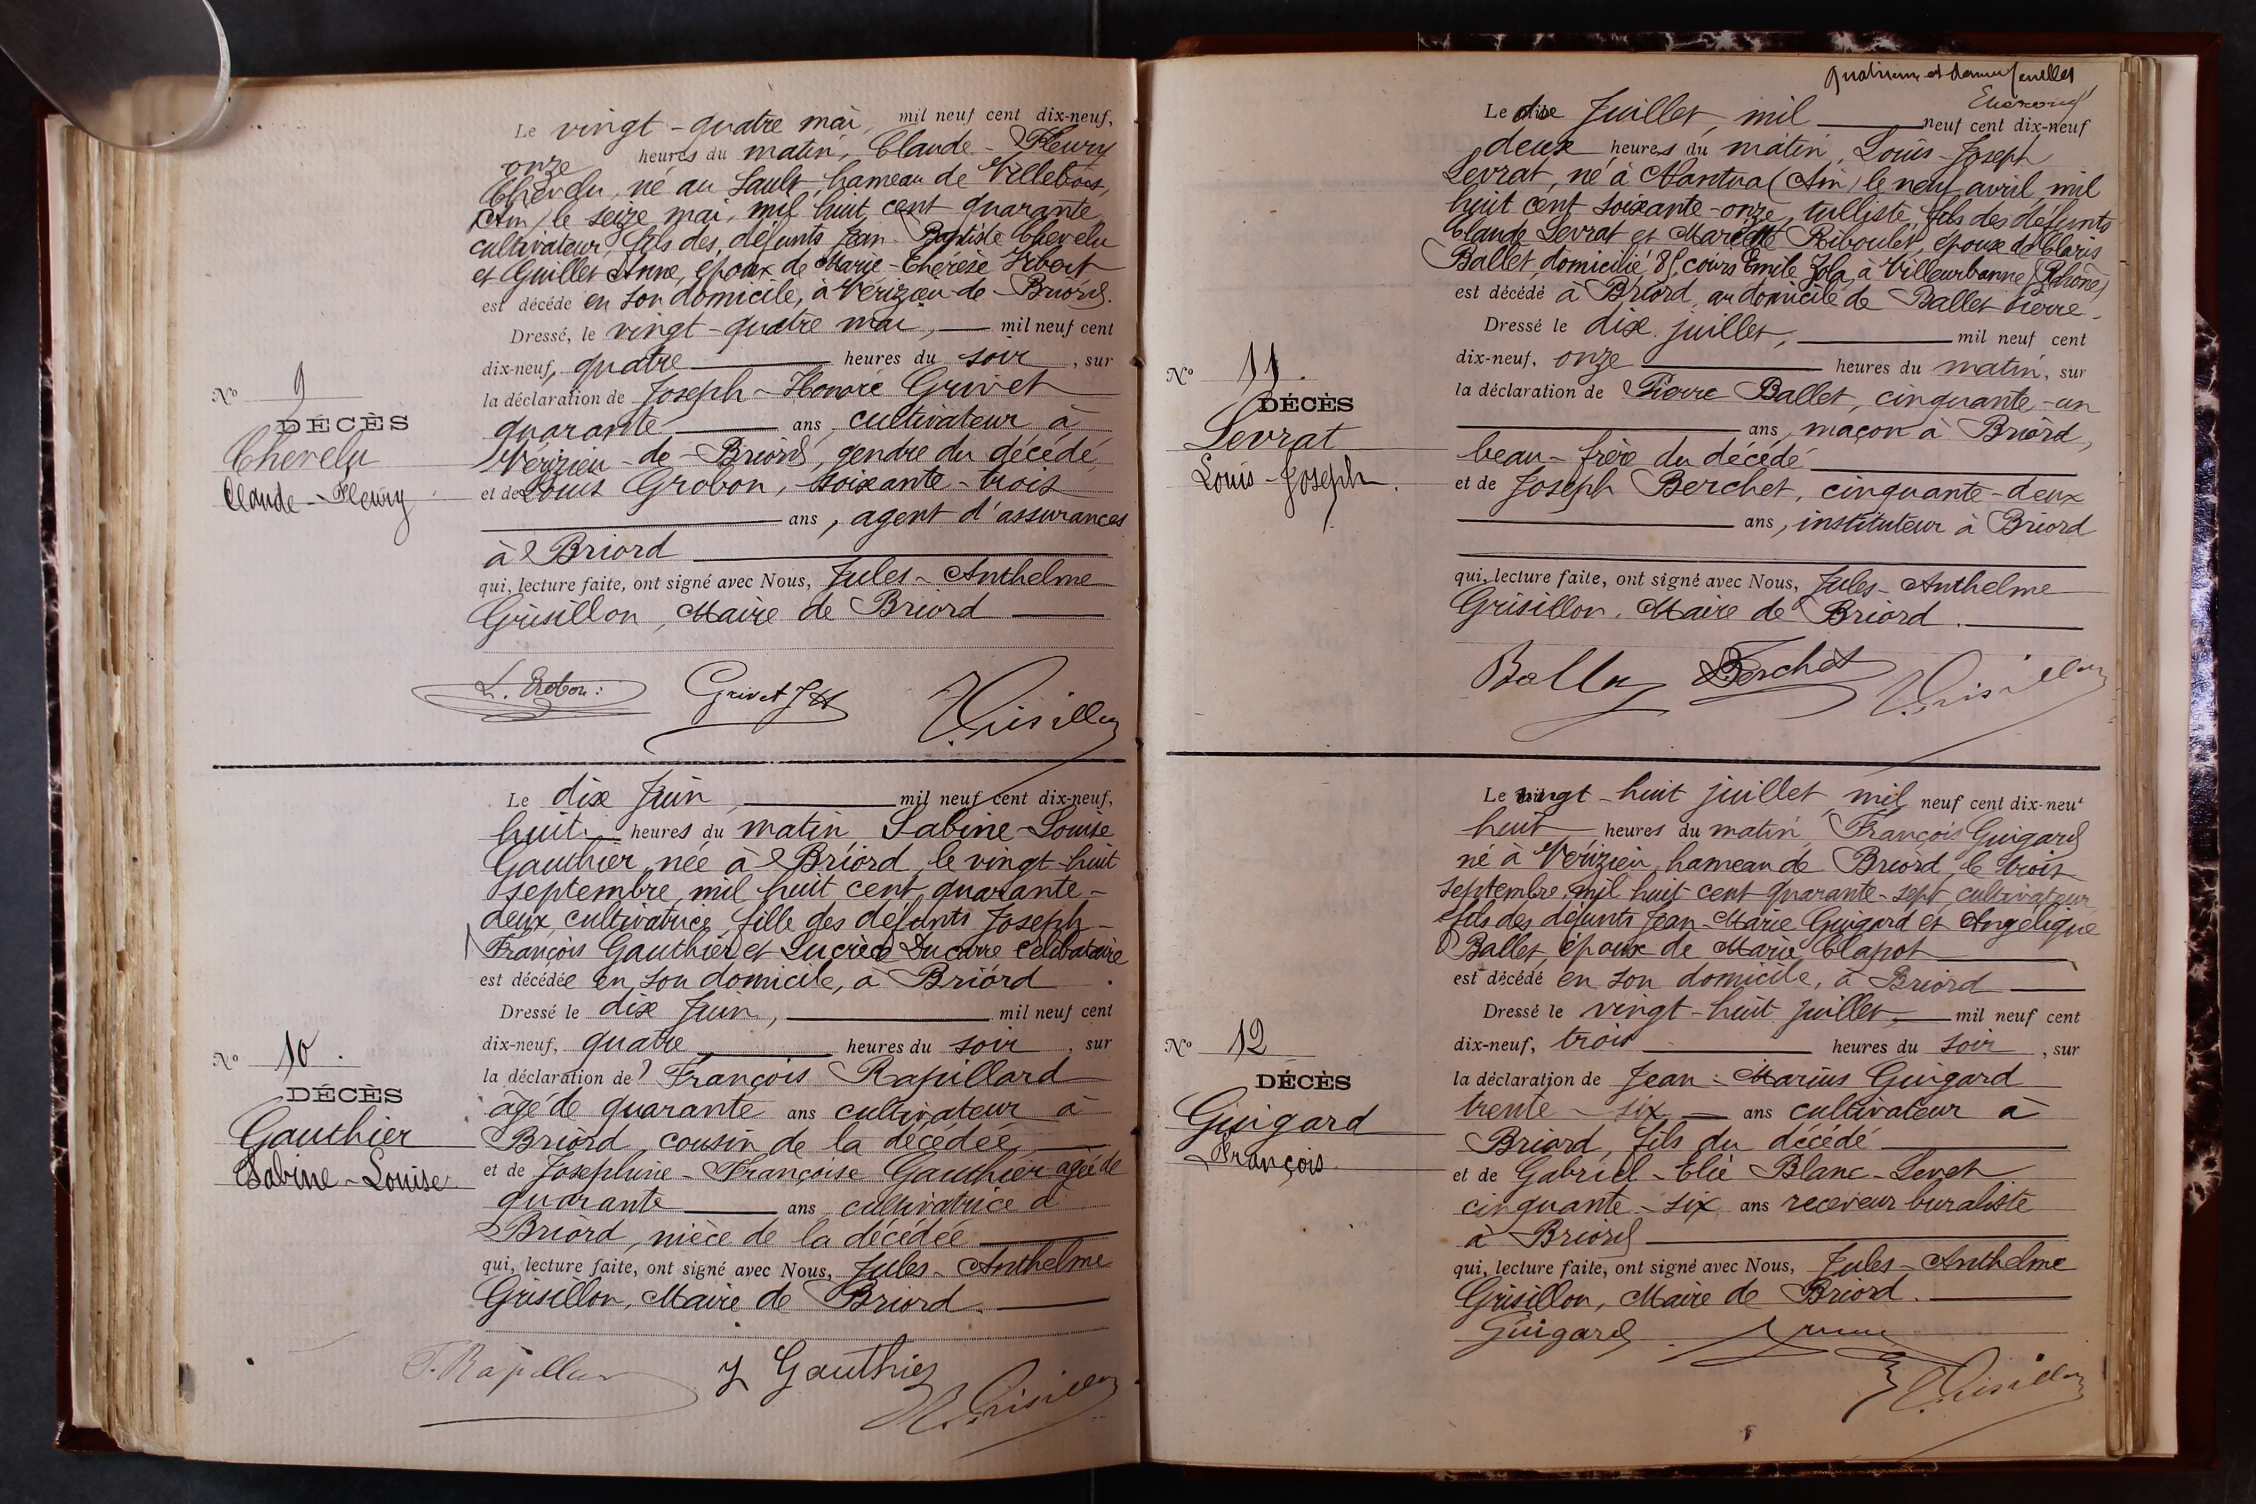 Le vingt-quatre mai, mil neuf cent dix-neuf,
onze heures du matin, Claude-Fleury
Chevelu, né au Sault, hameau de Villebois,
(Ain) le seize mai, mil huit cent quarante
cultivateur, fils des défunts Jean-Baptiste Chevelu
et Guillet Anne, époux de Marie-Thérèse
est décédé en son domicile, à Vérizieu-de-Briord.
Dressé, le vingt-quatre mai, mil neuf cent
dix-neuf, quatre heures du soir, sur
la déclaration de Joseph-Honoré Grivet
quarante ans, cultivateur à
Vérizieu-de-Briord, gendre du décédé
et de Louis Grobon, soixante-trois
ans, agent d'assurances
à Briord
qui, lecture faite, ont signé avec Nous, Jules-Anthelme
Grisillon, Maire de Briord
No 9
DÉCÈS
Chevelu
Claude-Fleury
L. Grobon Grivet JH Grisillon
Le dix Juin, mil neuf cent dix-neuf,
huit heures du matin Sabine-Louise
Gauthier, née à Briord, le vingt-huit
septembre, mil huit cent quarante-
deux, cultivatrice, fille des défunts Joseph-
François Gauthier et Lucrèce Ducarre célibataire
est décédée en son domicile, à Briord.
Dressé le dix Juin, mil neuf cent
dix-neuf, quatre heures du soir, sur
la déclaration de François Rapillard
âgé de quarante ans cultivateur à
Briord, cousin de la décédée
et de Joséphine-Françoise Gauthier agée de
quarante ans cultivatrice à
Briord, nièce de la décédée
qui, lecture faite, ont signé avec Nous, Jules-Anthelme
Grisillon, Maire de Briord.
No 10.
DÉCÈS
Gauthier
Sabine-Louise
F. Rapillard J Gauthier Grisillon
Quatrième et dernier feuillet
Le dix Juillet, mil neuf cent dix-neuf
deux heures du matin, Louis-Joseph
Levrat, né à Nantua (Ain) le neuf avril, mil
huit cent soixante-onze, tulliste, fils des défunts
Claude Levrat et Riboulet, époux de Claris
Ballet, domicilié, 85, cours Emile Zola, à Villeurbanne (Rhône)
est décédé à Briord, au domicile de Ballet Pierre.
Dressé le dix juillet, mil neuf cent
dix-neuf, onze heures du matin, sur
la déclaration de Pierre Ballet, cinquante-un
ans, maçon à Briord,
beau-frère du décédé
et de Joseph Berchet, cinquante-deux
ans, instituteur à Briord
qui, lecture faite, ont signé avec Nous, Jules-Anthelme
Grisillon, Maire de Briord.
No 11.
DÉCÈS
Levrat
Louis-Joseph.
Ballet Berchet Grisillon
Le vingt-huit juillet, mil neuf cent dix-neuf
huit heures du matin, François Guigard
né à Vérizieu, hameau de Briord, le trois
septembre, mil huit cent quarante-sept cultivateur
fils des défunts Jean-Marie Guigard et Angélique
Ballet, époux de Marie Clapot
est décédé en son domicile, à Briord
Dressé le vingt-huit juillet, mil neuf cent
dix-neuf, trois heures du soir, sur
la déclaration de Jean-Marius Guigard
trente-six ans cultivateur à
Briord, fils du décédé
et de Gabriel-Elie Blanc-Levet
cinquante-six ans receveur buraliste
à Briord
qui, lecture faite, ont signé avec Nous, Jules-Anthelme
Grisillon, Maire de Briord.
No 12
DÉCÈS
Guigard
François.
Guigard Grisillon